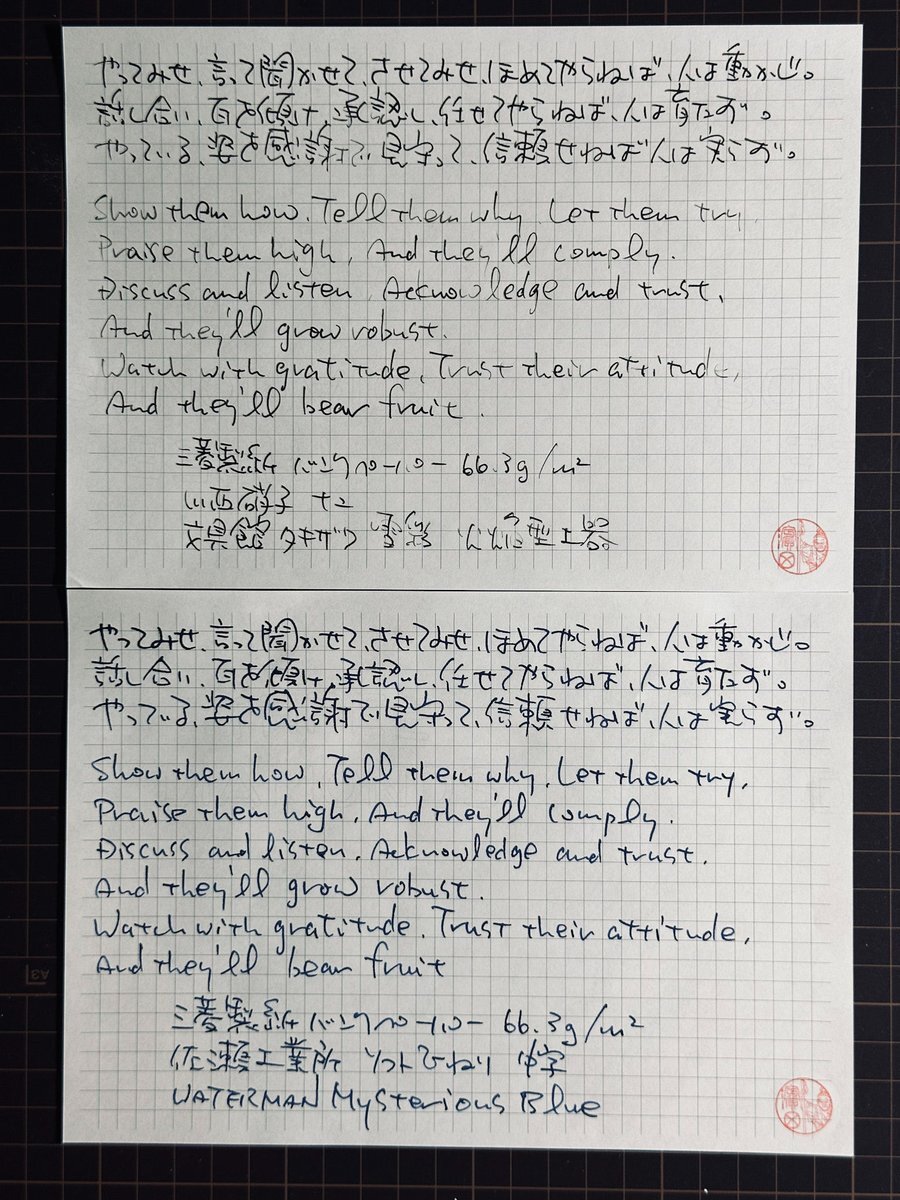 やってみせ、言って聞かせて、させてみせ、ほめてやらねば、人は動かじ。
話し合い、耳を傾け、承認し、任せてやらねば、人は育たず。
やっている、姿を感謝で見守って、信頼せねば人は実らず。
Show them how, Tell them why, Let them try,
Praise them high, And they'll comply.
Discuss and listen, Acknowledge and trust,
And they'll grow robust.
Watch with gratitude, Trust their attitude,
And they'll bear fruit.
三菱製紙 バンクペーパー 66.3g/m²
川西硝子 十二
文具館タキザワ 雪彩
やってみせ、言って聞かせて、させてみせ、ほめてやらねば、人は動かじ。
話し合い、耳を傾け、承認し、任せてやらねば、人は育たず。
やっている、姿を感謝で見守って、信頼せねば、人は実らず。
Show them how, Tell them why, Let them try,
Praise them high, And they'll comply.
Discuss and listen, Acknowledge and trust,
And they'll grow robust.
Watch with gratitude, Trust their attitude,
And they'll bear fruit
三菱製紙 バンクペーパー 66.3g/m²
佐瀬工業所 ソフトひねり 中字
WATERMAN Mysterious Blue
A3